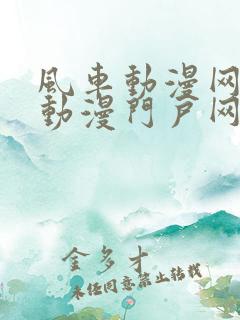 風車動漫网
動漫門戶网
金多才
未经同意禁止转载